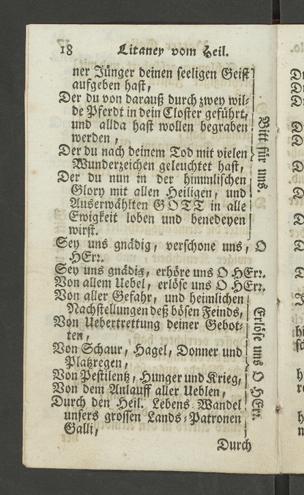 18 Litaney vom Heil.
ner Jünger deinen seeligen Geist
aufgeben hast,
Der du von darauß durch zwey wil-
de Pferdt in dein Closter geführt,
und allda hast wollen begraben
werden,
Der du nach deinem Tod mit vielen
Wunderzeichen geleuchtet hast,
Der du nun in der himmlischen
Glory mit allen Heiligen, und
Auserwählten GOTT in alle
Ewigkeit loben und benedeyen
wirst.
Bitt für uns.
Sey uns gnädig, verschone uns, O
HErr.
Sey uns gnädig, erhöre uns O HErr.
Von allem Uebel, erlöse uns O HErr.
Von aller Gefahr, und heimlichen
Nachstellungen deß bösen Feinds,
Von Uebertrettung deiner Gebot-
ten,
Von Schaur, Hagel, Donner und
Platzregen,
Von Pestilentz, Hunger und Krieg,
Von dem Anlauff aller Ueblen,
Durch den Heil. Lebens-Wandel
unsers grossen Lands-Patronen
Galli,
Erlöse uns O HErr.
Durch